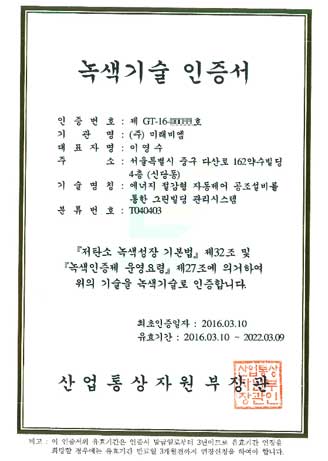 녹색기술 인증서
인 증 번 호 : 제 GT-16- 호
기 관 명 : (주) 미래비엠
대 표 자 명 : 이 영 수
주 소 : 서울특별시 중구 다산로 162약수빌딩
4층 (신당동)
기 술 명 칭 : 에너지 절감형 자동제어 공조설비를
통한 그린빌딩 관리시스템
분 류 번 호 : T040403
『저탄소 녹색성장 기본법』 제32조 및
『녹색인증제 운영요령』 제27조에 의거하여
위의 기술을 녹색기술로 인증합니다.
최초인증일자 : 2016.03.10
유효기간 : 2016.03.10 ~ 2022.03.09
산업통상자원부장관
산업통상
자원부
장관인
비고 : 이 인증서의 유효기간은 인증서 발급일로부터 3년이므로 유효기간 연장을
희망할 경우에는 유효기간 만료일 3개월전까지 연장신청을 하여야 합니다.